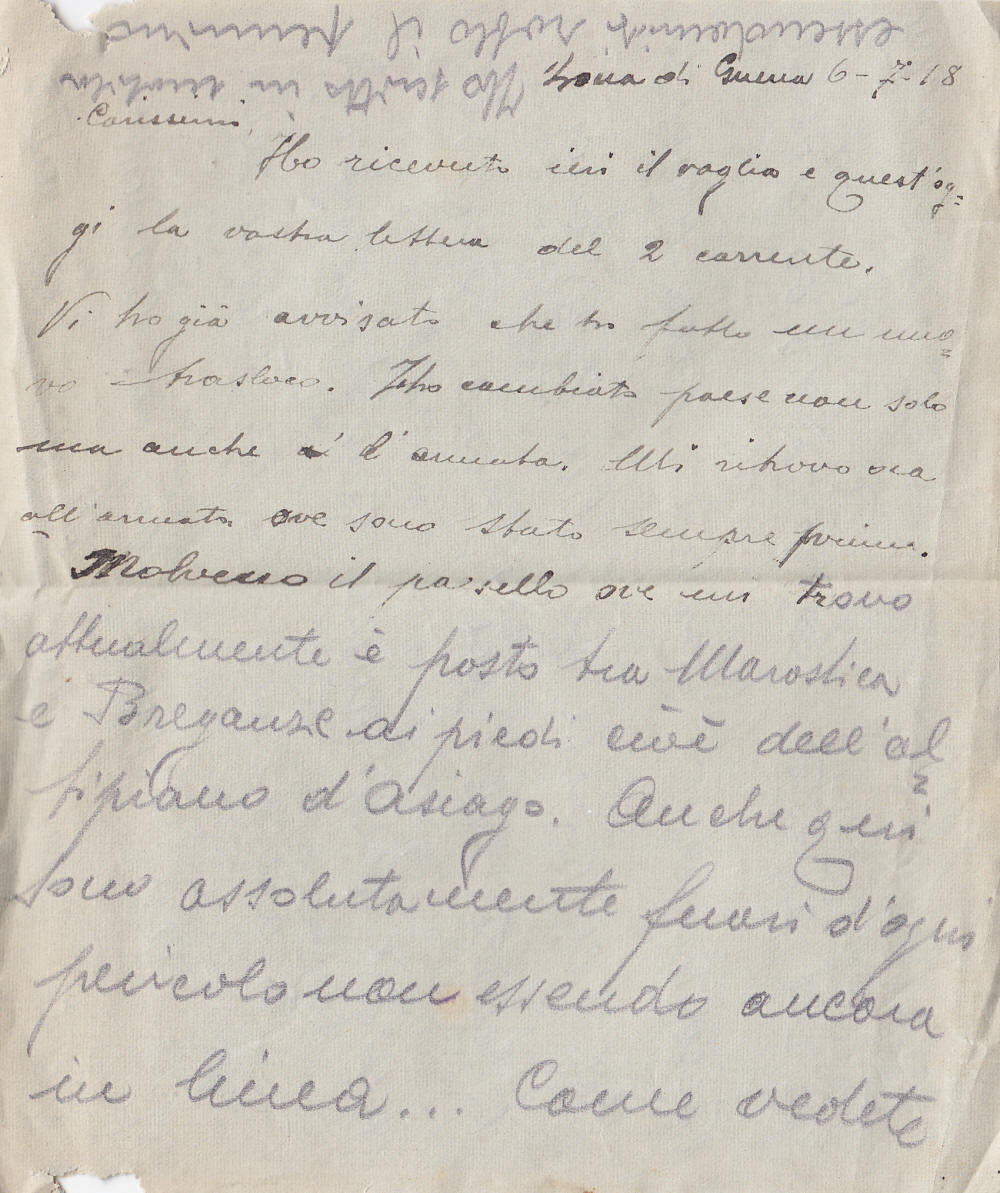 Zona di Guerra 6-7-18
Carissimi,
Ho ricevuto ieri il vaglia e quest'og=
gi la vostra lettera del 2 corrente.
Vi ho già avvisato che ho fatto un nuo=
vo trasloco. Ho cambiato paese non solo
ma anche d'armata. Mi ritrovo ora
all'armata ove sono stato sempre prima.
Molveno il paesello ove mi trovo
attualmente è posto tra Marostica
e Breganze ai piedi cioè dell'al=
tipiano d'Asiago. Anche qui
sono assolutamente fuori d'ogni
pericolo non essendo ancora
in linea... Come vedete
Ho scritto in
essendomi rotto il pennino